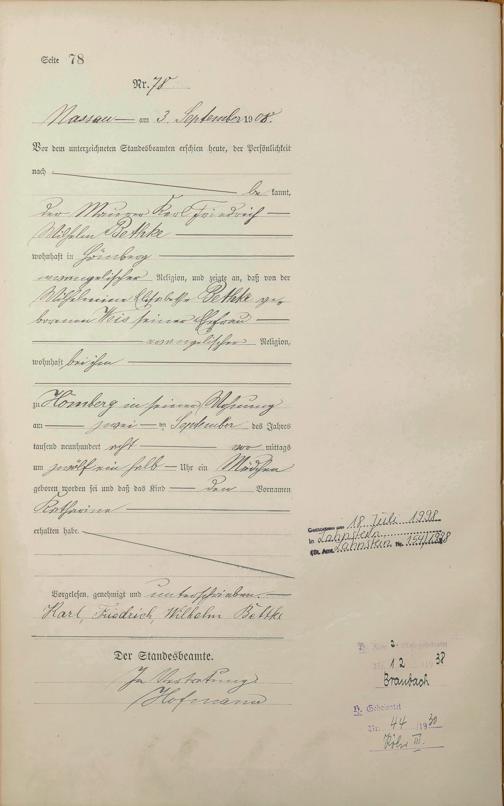 Seite 78
Nr. 78
Nassau am 3. September 1908.
Vor dem unterzeichneten Standesbeamten erschien heute, der Persönlichkeit
nach
be kannt,
der Maurer Karl Friedrich
Wilhelm Bethke
wohnhaft in Hömberg
evangelischer Religion, und zeigte an, daß von der
Wilhelmine Elisabethe Bethke ge-
borenen Weis seiner Ehefrau
evangelischer Religion,
wohnhaft bei ihm
zu Hömberg in seiner Wohnung
am zwei ten September des Jahres
tausend neunhundert acht vor mittags
um zwölf ein halb Uhr ein Mädchen
geboren worden sei und daß das Kind den Vornamen
Katharine
erhalten habe.
Vorgelesen, genehmigt und unterschrieben.
Karl, Friedrich, Wilhelm Bethke
Der Standesbeamte.
In Vertretung
Hofmann
Gestorben am 18. Juli 1998
in Lahnstein
(St. Amt Lahnstein Nr. /1998
Nr. 12 1938
Braubach
H. Geheiratet
Nr. 44 /1930
Köln III.